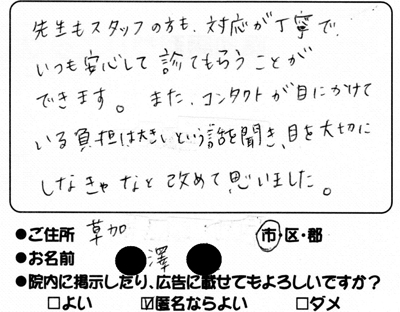 先生もスタッフの方も、対応が丁寧で、
いつも安心して診てもらうことが
できます。また、コンタクトが目にかけて
いる負担は大きいという話を聞き、目を大切に
しなきゃなと改めて思いました。
●ご住所 草加 市・区・郡
●お名前 澤
●院内に掲示したり、広告に載せてもよろしいですか?
□よい ☑匿名ならよい □ダメ